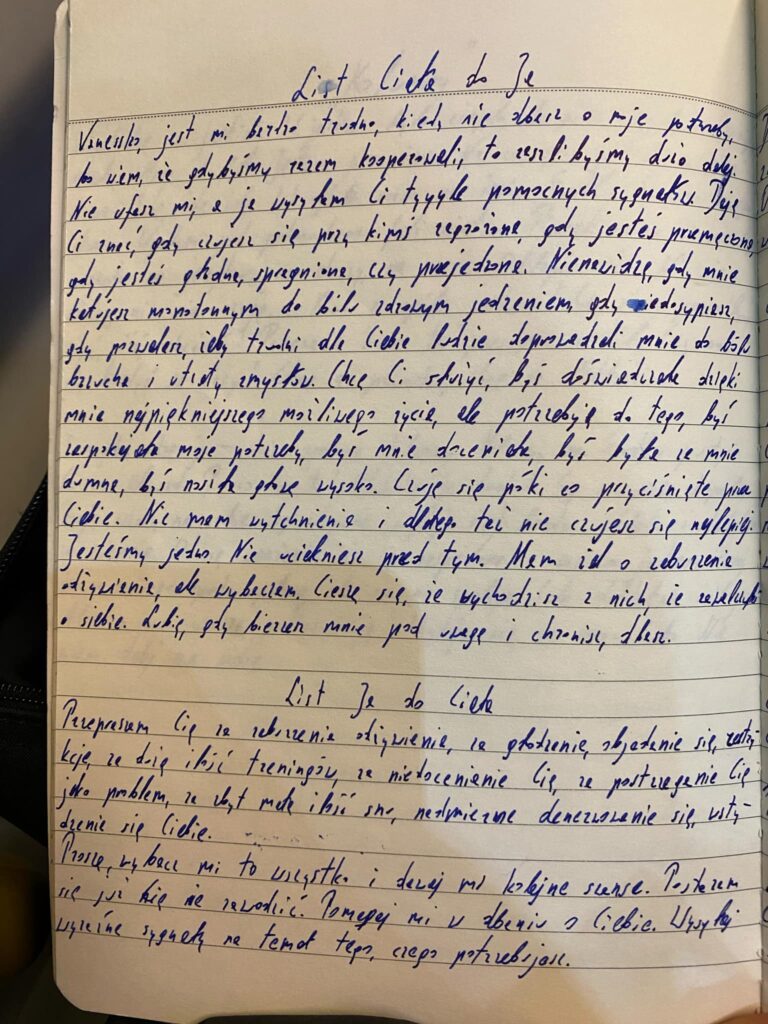 List Ciała do Ja
Vanessko, jest mi bardzo trudno, kiedy nie dbasz o moje potrzeby,
bo wiem, że gdybyśmy razem kooperowali, to zaszlibyśmy dużo dalej.
Nie ufasz mi, a ja wysyłam Ci tyyyle pomocnych sygnałów. Daję
Ci znać, gdy czujesz się przy kimś zagrożona, gdy jesteś przemęczona,
gdy jesteś głodna, spragniona, czy przejedzona. Nienawidzę, gdy mnie
katujesz monotonnym do bólu zdrowym jedzeniem, gdy niedosypiasz,
gdy pozwalasz, żeby trudni dla Ciebie ludzie doprowadzali mnie do bólu
brzucha i utraty zmysłów. Chcę Ci służyć, byś doświadczała dzięki
mnie najpiękniejszego możliwego życia, ale potrzebuję do tego, byś
zaspokajała moje potrzeby, byś mnie doceniała, byś była ze mnie
dumna, byś nosiła głowę wysoko. Czuję się póki co przyciśnięte przez
Ciebie. Nie mam wytchnienia i dlatego też nie czujesz się najlepiej.
Jesteśmy jedno. Nie uciekniesz przed tym. Mam żal o zaburzenia
odżywiania, ale wybaczam. Cieszę się, że wychodzisz z nich, że zawalczyłaś
o siebie. Lubię, gdy bierzesz mnie pod uwagę i chronisz, dbasz.
List Ja do Ciała
Przepraszam Cię za zaburzenia odżywiania, za głodzenie, objadanie się, restry-
kcje, za dużą ilość treningów, za niedocenianie Cię, za postrzeganie Cię
jako problem, za zbyt małą ilość snu, nadmierne denerwowanie się, wsty-
dzenie się Ciebie.
Proszę, wybacz mi to wszystko i dawaj mi kolejne szanse. Postaram
się już Cię nie zawodzić. Pomagaj mi w dbaniu o Ciebie. Wysyłaj
wyraźne sygnały na temat tego, czego potrzebujesz.